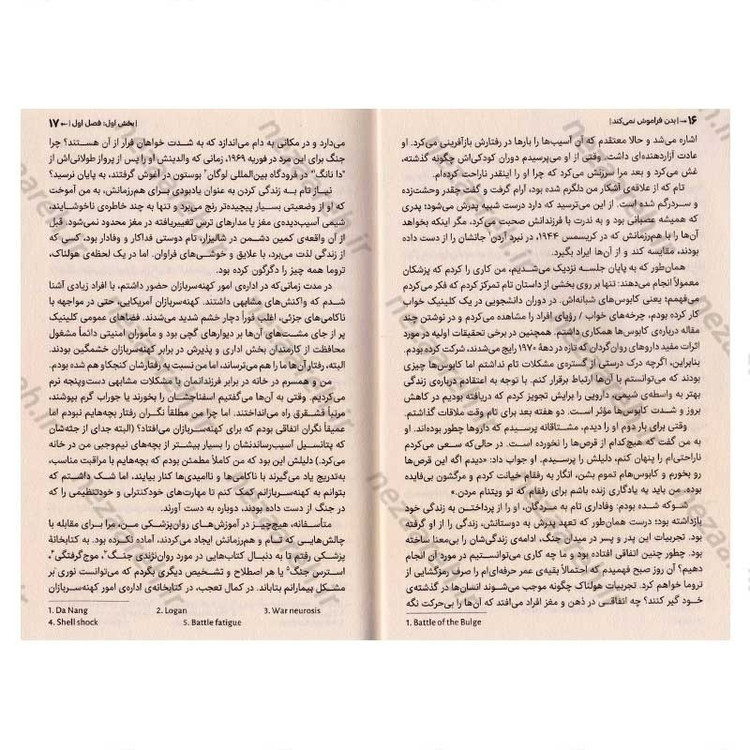 ۱۶ ← | بدن فراموش نمی‌کند |
اشاره می‌شد و حالا معتقدم که آن آسیب‌ها را بارها در رفتارش بازآفرینی می‌کرد. او
عادت آزاردهنده‌ای داشت. وقتی از او می‌پرسیدم دوران کودکی‌اش چگونه گذشته،
غش می‌کرد و بعد مرا سرزنش می‌کرد که چرا او را اینقدر ناراحت کرده‌ام.
تام که از علاقه‌ی آشکار من دلگرم شده بود، آرام گرفت و گفت چقدر وحشت‌زده
و سردرگم شده است. از این می‌ترسید که دارد درست شبیه پدرش می‌شود؛ پدری
که همیشه عصبانی بود و به ندرت با فرزندانش صحبت می‌کرد، مگر اینکه بخواهد
آن‌ها را با هم‌رزمانش که در کریسمس ۱۹۴۴، در نبرد آردن¹ جانشان را از دست داده
بودند، مقایسه کند و از آن‌ها ایراد بگیرد.
همان‌طور که به پایان جلسه نزدیک می‌شدیم، من کاری را کردم که پزشکان
معمولاً انجام می‌دهند: تنها بر روی بخشی از داستان تام تمرکز کردم که فکر می‌کردم
می‌فهمم؛ یعنی کابوس‌های شبانه‌اش. در دوران دانشجویی در یک کلینیک خواب
کار کرده بودم، چرخه‌های خواب / رؤیای افراد را مشاهده می‌کردم و در نوشتن چند
مقاله درباره‌ی کابوس‌ها همکاری داشتم. همچنین در برخی تحقیقات اولیه در مورد
اثرات مفید داروهای روان‌گردان که تازه در دههٔ ۱۹۷۰ رایج می‌شدند، شرکت کرده بودم.
بنابراین، اگرچه درک درستی از گستره‌ی مشکلات تام نداشتم اما کابوس‌ها چیزی
بودند که می‌توانستم با آن‌ها ارتباط برقرار کنم. با توجه به اعتقادم درباره‌ی زندگی
بهتر به واسطه‌ی شیمی، دارویی را برایش تجویز کردم که دریافته بودیم در کاهش
بروز و شدت کابوس‌ها مؤثر است. دو هفته بعد برای تام وقت ملاقات گذاشتم.
وقتی برای بار دوم او را دیدم، مشتاقانه پرسیدم که داروها چطور بوده‌اند. او
به من گفت که هیچ‌کدام از قرص‌ها را نخورده است. در حالی‌که سعی می‌کردم
ناراحتی‌ام را پنهان کنم، دلیلش را پرسیدم. او جواب داد: «دیدم اگه این قرص‌ها
رو بخورم و کابوس‌هام تموم بشن، انگار به رفقام خیانت کردم و مرگشون بی‌فایده
بوده. من باید یه یادگاری زنده باشم برای رفقام که تو ویتنام مردن.»
شوکه شده بودم: وفاداری تام به مردگان، او را از پرداختن به زندگی خود
بازداشته بود؛ درست همان‌طور که تعهد پدرش به دوستانش، زندگی را از او گرفته
بود. تجربیات این پدر و پسر در میدان جنگ، ادامه‌ی زندگی‌شان را بی‌معنا ساخته
بود. چطور چنین اتفاقی افتاده بود و ما چه کاری می‌توانستیم در مورد آن انجام
دهیم؟ آن روز صبح فهمیدم که احتمالاً بقیه‌ی عمر حرفه‌ای‌ام را صرف رمزگشایی از
تروما خواهم کرد. تجربیات هولناک چگونه موجب می‌شوند انسان‌ها در گذشته‌ی
خود گیر کنند؟ چه اتفاقی در ذهن و مغز افراد می‌افتد که آن‌ها را بی‌حرکت نگه
1. Battle of the Bulge
| بخش اول: فصل اول | ← ۱۷
می‌دارد و در مکانی به دام می‌اندازد که به شدت خواهان فرار از آن هستند؟ چرا
جنگ برای این مرد در فوریه ۱۹۶۹، زمانی که والدینش او را پس از پرواز طولانی‌اش از
"دا نانگ"¹ در فرودگاه بین‌المللی لوگان² بوستون در آغوش گرفتند، به پایان نرسید؟
نیاز تام به زندگی کردن به عنوان یادبودی برای هم‌رزمانش، به من آموخت
که او از وضعیتی بسیار پیچیده‌تر رنج می‌برد و تنها به چند خاطره‌ی ناخوشایند،
شیمی آسیب‌دیده‌ی مغز یا مدارهای ترس تغییریافته در مغز محدود نمی‌شود. قبل
از آن واقعه‌ی کمین دشمن در شالیزار، تام دوستی فداکار و وفادار بود، کسی که
از زندگی لذت می‌برد، با علایق و خوشی‌های فراوان. اما در یک لحظه‌ی هولناک،
تروما همه چیز را دگرگون کرده بود.
در مدت زمانی‌که در اداره‌ی امور کهنه‌سربازان حضور داشتم، با افراد زیادی آشنا
شدم که واکنش‌های مشابهی داشتند. کهنه‌سربازان آمریکایی، حتی در مواجهه با
ناکامی‌های جزئی، اغلب فوراً دچار خشم شدید می‌شدند. فضاهای عمومی کلینیک
پر از جای مشت‌های آن‌ها بر دیوارهای گچی بود و مأموران امنیتی دائماً مشغول
محافظت از کارمندان بخش اداری و پذیرش در برابر کهنه‌سربازان خشمگین بودند.
البته، رفتار آن‌ها ما را هم می‌ترساند، اما من نسبت به رفتارشان کنجکاو هم شده بودم.
من و همسرم در خانه در برابر فرزندانمان با مشکلات مشابهی دست‌وپنجه نرم
می‌کردیم. وقتی به آن‌ها می‌گفتیم اسفناجشان را بخورند یا جوراب گرم بپوشند،
مرتباً قشقرق راه می‌انداختند. اما چرا من مطلقاً نگران رفتار بچه‌هایم نبودم اما
عمیقاً نگران اتفاقی بودم که برای کهنه‌سربازان می‌افتاد؟ (البته جدای از جثه‌شان
که پتانسیل آسیب‌رساندنشان را بسیار بیشتر از بچه‌های نیم‌وجبی من در خانه
می‌کرد.) دلیلش این بود که من کاملاً مطمئن بودم که بچه‌هایم با مراقبت مناسب،
به‌تدریج یاد می‌گیرند با ناکامی‌ها و ناامیدی‌ها کنار بیایند، اما شک داشتم که
بتوانم به کهنه‌سربازانم کمک کنم تا مهارت‌های خودکنترلی و خودتنظیمی را که
در جنگ از دست داده بودند، دوباره به دست آورند.
متأسفانه، هیچ‌چیز در آموزش‌های روان‌پزشکی من، مرا برای مقابله با
چالش‌هایی که تام و هم‌رزمانش ایجاد می‌کردند، آماده نکرده بود. به کتابخانهٔ
پزشکی رفتم تا به دنبال کتاب‌هایی در مورد روان‌نژندی جنگ³، موج‌گرفتگی⁴،
استرس جنگ⁵ یا هر اصطلاح و تشخیص دیگری بگردم که می‌توانست نوری بر
مشکل بیمارانم بتاباند. در کمال تعجب، در کتابخانه‌ی اداره‌ی امور کهنه‌سربازان
1. Da Nang 2. Logan 3. War neurosis
4. Shell shock 5. Battle fatigue
nezaareh.ir